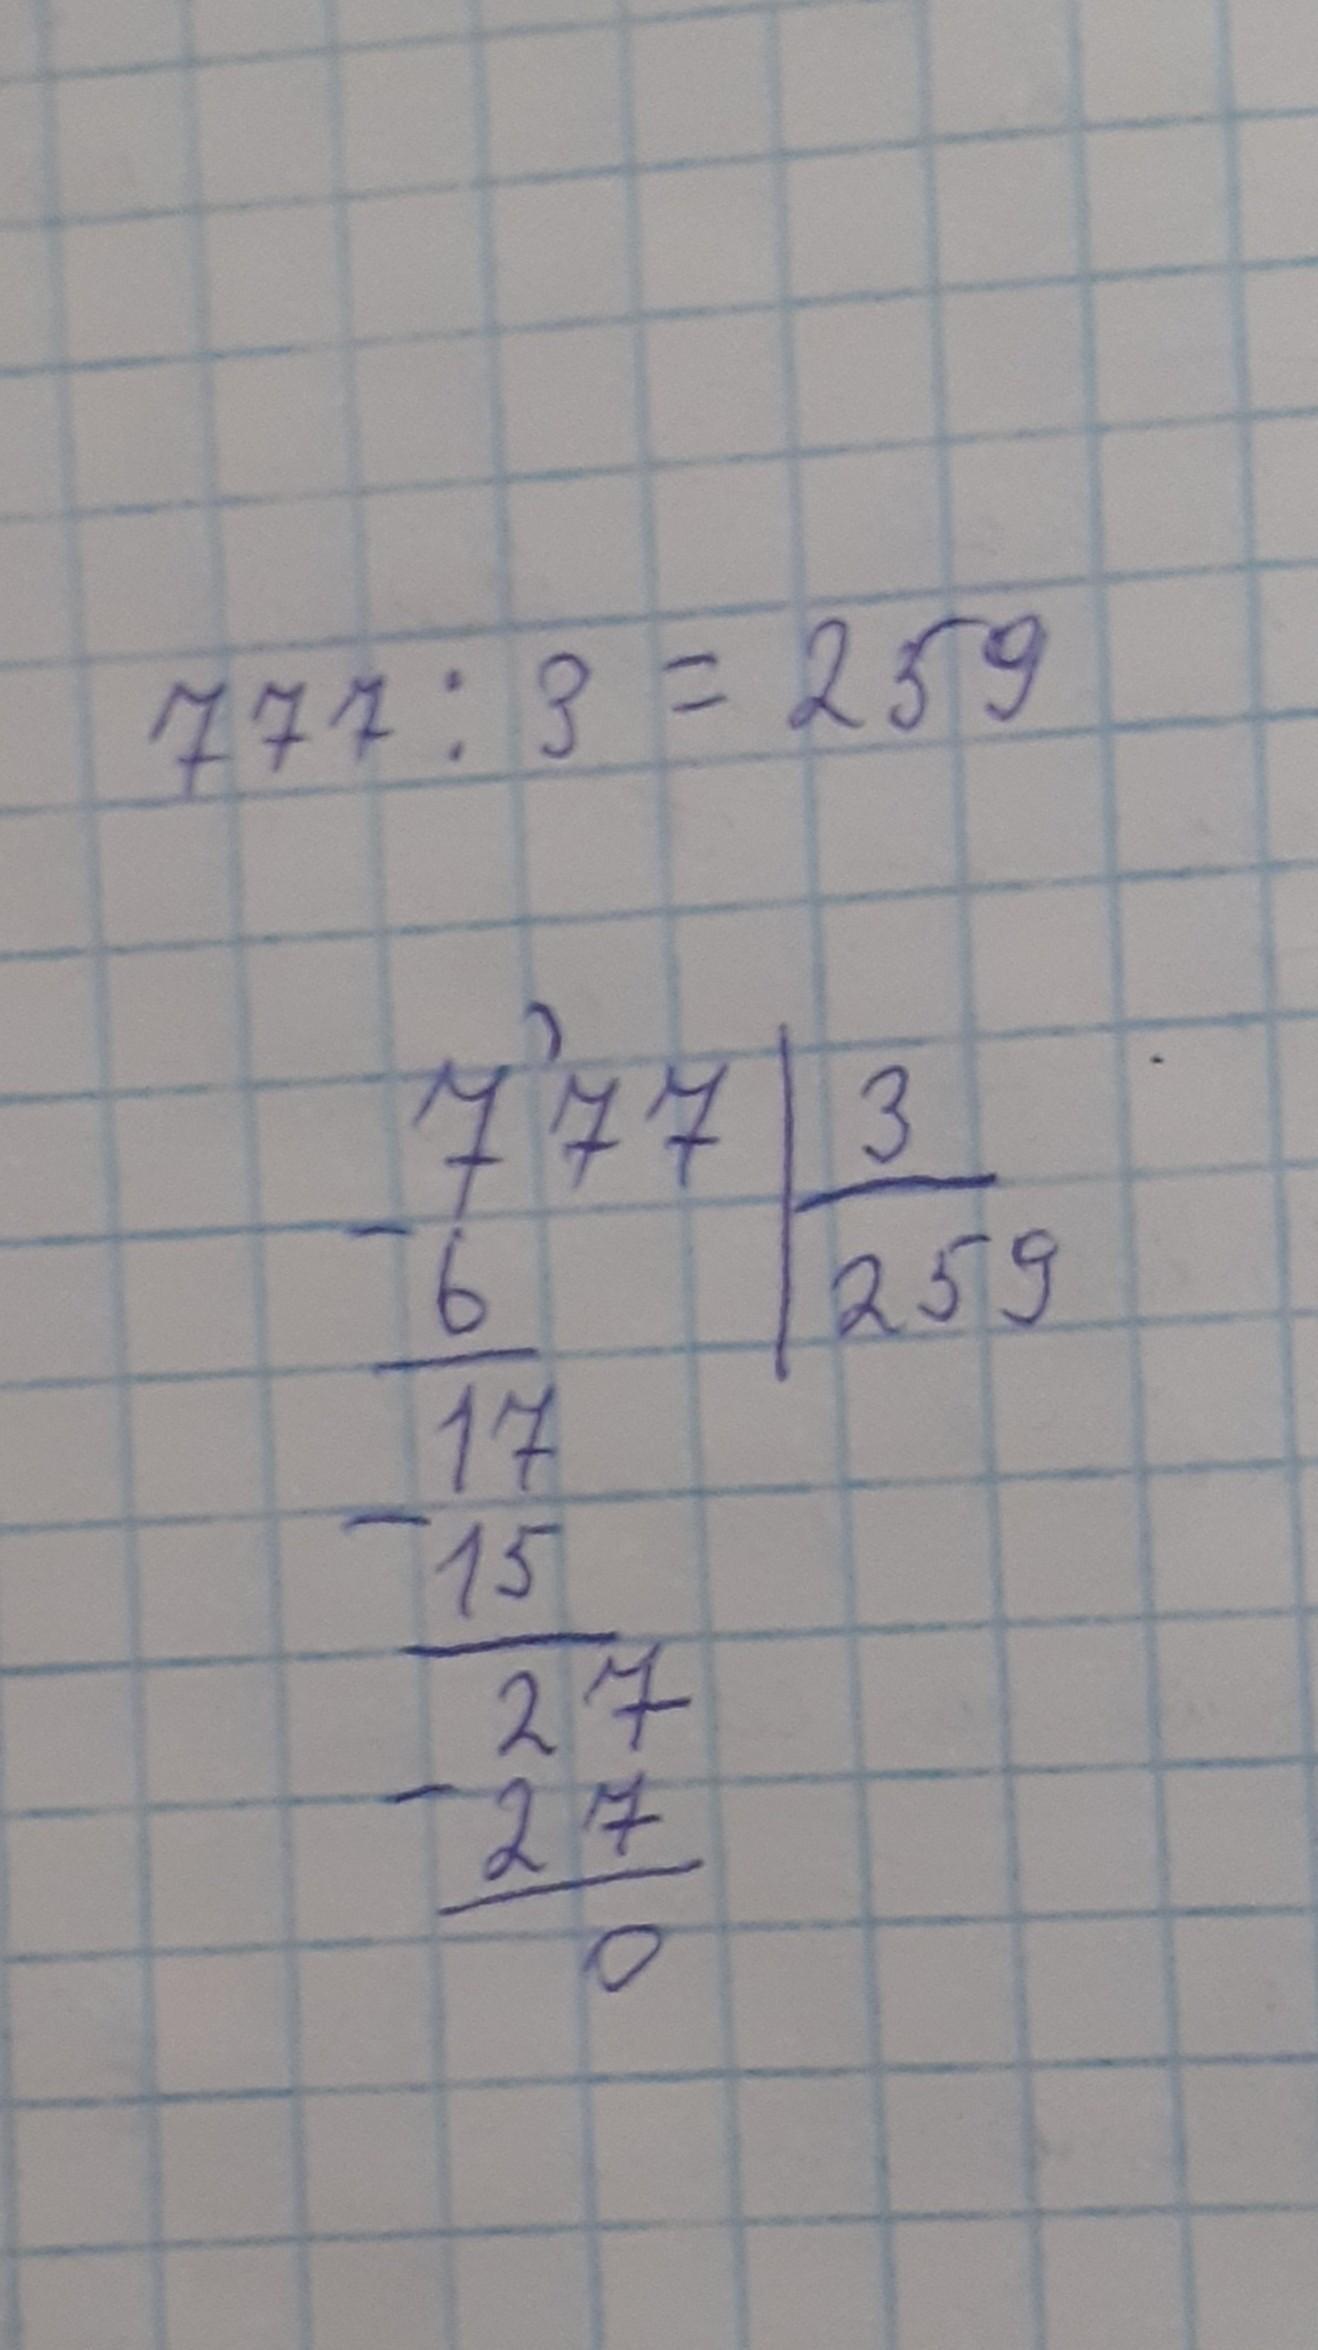 777 : 3 = 259
777 | 3
- 6 | 259
17
- 15
27
- 27
0